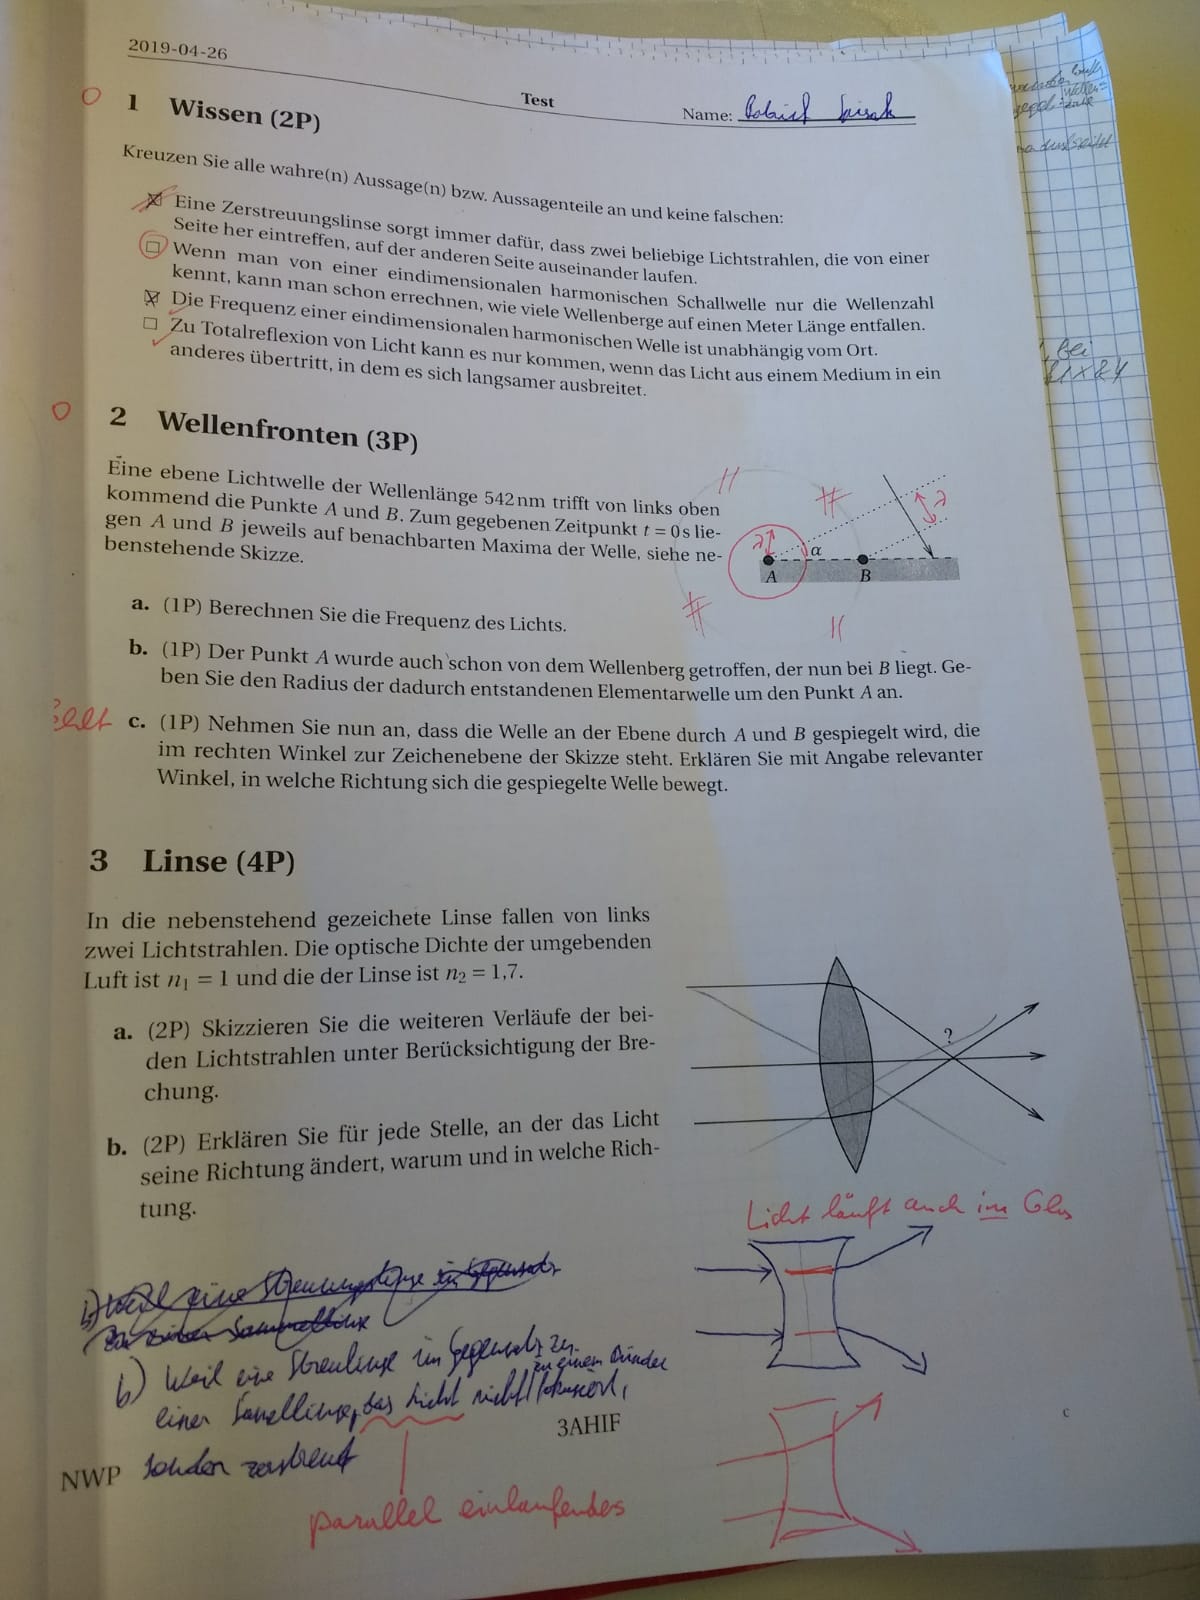 2019-04-26
Test
Name:
1 Wissen (2P)
Kreuzen Sie alle wahre(n) Aussage(n) bzw. Aussagenteile an und keine falschen:
Eine Zerstreuungslinse sorgt immer dafür, dass zwei beliebige Lichtstrahlen, die von einer
Seite her eintreffen, auf der anderen Seite auseinander laufen.
Wenn man von einer eindimensionalen harmonischen Schallwelle nur die Wellenzahl
kennt, kann man schon errechnen, wie viele Wellenberge auf einen Meter Länge entfallen.
Die Frequenz einer eindimensionalen harmonischen Welle ist unabhängig vom Ort.
Zu Totalreflexion von Licht kann es nur kommen, wenn das Licht aus einem Medium in ein
anderes übertritt, in dem es sich langsamer ausbreitet.
2 Wellenfronten (3P)
Eine ebene Lichtwelle der Wellenlänge 542 nm trifft von links oben
kommend die Punkte A und B. Zum gegebenen Zeitpunkt t = 0 s lie-
gen A und B jeweils auf benachbarten Maxima der Welle, siehe ne-
benstehende Skizze.
λ
λ
α
A
B
a. (1P) Berechnen Sie die Frequenz des Lichts.
b. (1P) Der Punkt A wurde auch schon von dem Wellenberg getroffen, der nun bei B liegt. Ge-
ben Sie den Radius der dadurch entstandenen Elementarwelle um den Punkt A an.
c. (1P) Nehmen Sie nun an, dass die Welle an der Ebene durch A und B gespiegelt wird, die
im rechten Winkel zur Zeichenebene der Skizze steht. Erklären Sie mit Angabe relevanter
Winkel, in welche Richtung sich die gespiegelte Welle bewegt.
3 Linse (4P)
In die nebenstehend gezeichete Linse fallen von links
zwei Lichtstrahlen. Die optische Dichte der umgebenden
Luft ist n1 = 1 und die der Linse ist n2 = 1,7.
a. (2P) Skizzieren Sie die weiteren Verläufe der bei-
den Lichtstrahlen unter Berücksichtigung der Bre-
chung.
b. (2P) Erklären Sie für jede Stelle, an der das Licht
seine Richtung ändert, warum und in welche Rich-
tung.
?
Licht läuft auch im Glas
b) Weil eine Streulinse im Gegensatz zu
einer Sammellinse, das Licht nicht zu einem Bündel fokusiert,
sondern zerstreut
parallel einlaufendes
NWP
3AHIF